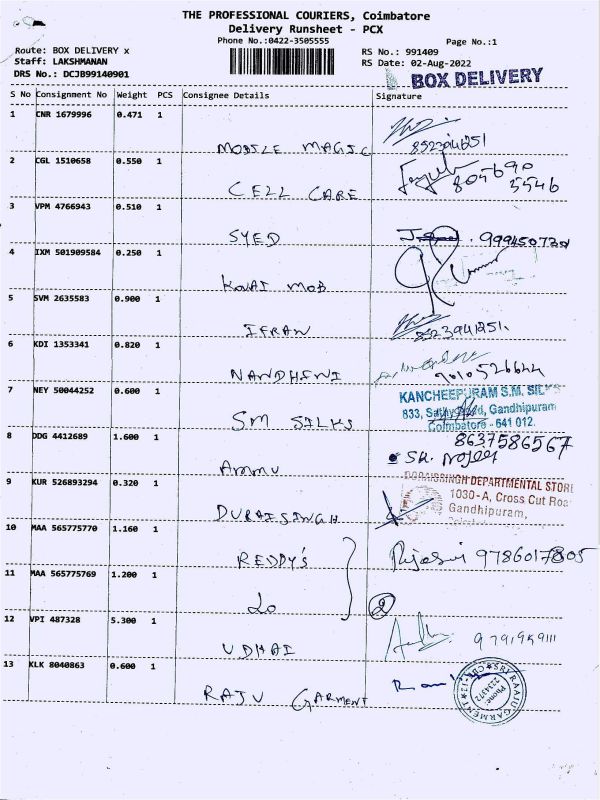 THE PROFESSIONAL COURIERS, Coimbatore
Delivery Runsheet - PCX
Phone No.:0422-3505555
Page No.:1
Route: BOX DELIVERY x
RS No.: 991409
Staff: LAKSHMANAN
RS Date: 02-Aug-2022
DRS No.: DCJB99140901
BOX DELIVERY
S No Consignment No Weight PCS Consignee Details Signature
1 CNR 1679996 0.471 1
MOBILE MAGIC 8523941251
2 CGL 1510658 0.550 1
CELL CARE 805690
5546
3 VPM 4766943 0.510 1
SYED
4 IXM 501909584 0.250 1
KOVAI MOB
5 SVM 2635583 0.900 1
IFRAN 8523941251.
6 KDI 1353341 0.820 1
NANDHINI
7 NEY 50044252 0.600 1
KANCHEEPURAM S.M. SILKS
833, Sathy Road, Gandhipuram
Coimbatore - 641 012.
SM SILKS
8 DDG 4412689 1.600 1
8637586567
AMMU
9 KUR 526893294 0.320 1
DORAISINGH DEPARTMENTAL STORE
1030-A, Cross Cut Roa
Gandhipuram,
DURAISINGH
10 MAA 565775770 1.160 1
REDDY'S 9786017805
11 MAA 565775769 1.200 1
Do 2
12 VPI 487328 5.300 1
UDHAI 9791959111
13 KLK 8040863 0.600 1
RAJU GARMENT
SRI RAAJU GARMENT
CBE-12
Phone:
2234372